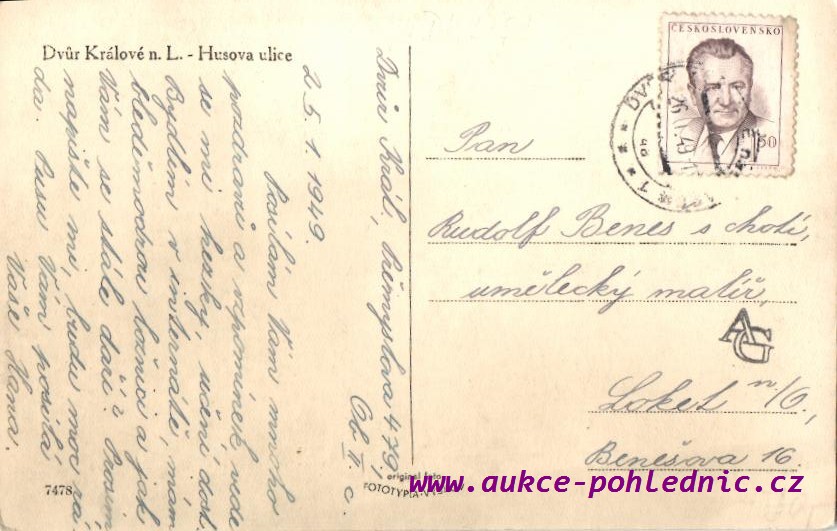 Dvůr Králové n. L. - Husova ulice
Dvůr Král, Přemyslova 479,
Ob. II. c.
25.1.1949.
Posílám Vám mnoho
pozdravů a vzpomínek vede
se mi hezky, učení dost.
Bydlím v internátě, mám
bleděmodrou ložnici a jak
Vám se stále daří? Prosím
napište mi, budu moc rá-
da. Pusu Vám posílá
Vaše Hana.
7478
ČESKOSLOVENSKO
50
Pan
Rudolf Beneš s chotí,
umělecký malíř,
AG
Loket n/O,
Benešova 16.
original foto
FOTOTYPIA-
www.aukce-pohlednic.cz